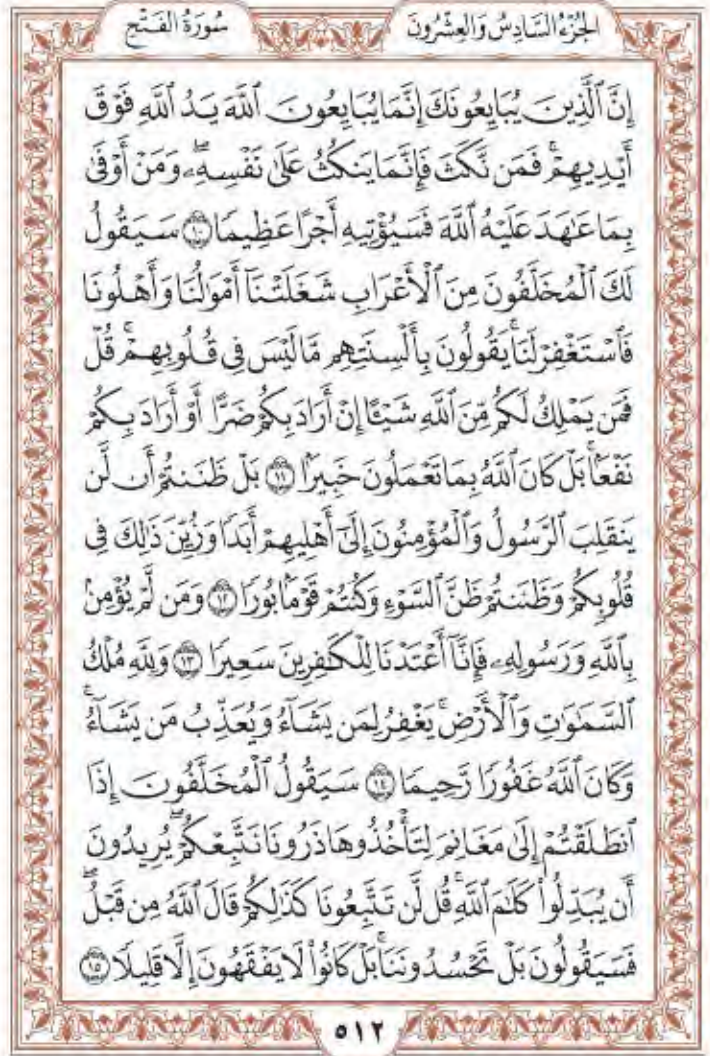 سُورَةُ الفَتْحِ
الجُزْءُ السَّادِسُ وَالعِشْرُونَ
إِنَّ ٱلَّذِينَ يُبَايِعُونَكَ إِنَّمَا يُبَايِعُونَ ٱللَّهَ يَدُ ٱللَّهِ فَوْقَ
أَيْدِيهِمْۚ فَمَن نَّكَثَ فَإِنَّمَا يَنكُثُ عَلَىٰ نَفْسِهِۦۖ وَمَنْ أَوْفَىٰ
بِمَا عَٰهَدَ عَلَيْهُ ٱللَّهَ فَسَيُؤْتِيهِ أَجْرًا عَظِيمًا ١٠ سَيَقُولُ
لَكَ ٱلْمُخَلَّفُونَ مِنَ ٱلْأَعْرَابِ شَغَلَتْنَآ أَمْوَٰلُنَا وَأَهْلُونَا
فَٱسْتَغْفِرْ لَنَاۚ يَقُولُونَ بِأَلْسِنَتِهِم مَّا لَيْسَ فِى قُلُوبِهِمْۚ قُلْ
فَمَن يَمْلِكُ لَكُم مِّنَ ٱللَّهِ شَيْـًٔا إِنْ أَرَادَ بِكُمْ ضَرًّا أَوْ أَرَادَ بِكُمْ
نَفْعًۢاۚ بَلْ كَانَ ٱللَّهُ بِمَا تَعْمَلُونَ خَبِيرًۢا ١١ بَلْ ظَنَنتُمْ أَن لَّن
يَنقَلِبَ ٱلرَّسُولُ وَٱلْمُؤْمِنُونَ إِلَىٰٓ أَهْلِيهِمْ أَبَدًا وَزُيِّنَ ذَٰلِكَ فِى
قُلُوبِكُمْ وَظَنَنتُمْ ظَنَّ ٱلسَّوْءِ وَكُنتُمْ قَوْمًۢا بُورًا ١٢ وَمَن لَّمْ يُؤْمِنۢ
بِٱللَّهِ وَرَسُولِهِۦ فَإِنَّآ أَعْتَدْنَا لِلْكَٰفِرِينَ سَعِيرًا ١٣ وَلِلَّهِ مُلْكُ
ٱلسَّمَٰوَٰتِ وَٱلْأَرْضِۚ يَغْفِرُ لِمَن يَشَآءُ وَيُعَذِّبُ مَن يَشَآءُۚ
وَكَانَ ٱللَّهُ غَفُورًا رَّحِيمًا ١٤ سَيَقُولُ ٱلْمُخَلَّفُونَ إِذَا
ٱنطَلَقْتُمْ إِلَىٰ مَغَانِمَ لِتَأْخُذُوهَا ذَرُونَا نَتَّبِعْكُمْۖ يُرِيدُونَ
أَن يُبَدِّلُوا۟ كَلَٰمَ ٱللَّهِۚ قُل لَّن تَتَّبِعُونَا كَذَٰلِكُمْ قَالَ ٱللَّهُ مِن قَبْلُۖ
فَسَيَقُولُونَ بَلْ تَحْسُدُونَنَاۚ بَلْ كَانُوا۟ لَا يَفْقَهُونَ إِلَّا قَلِيلًا ١٥
٥١٢